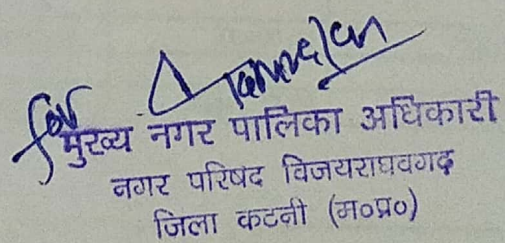 for
मुख्य नगर पालिका अधिकारी
नगर परिषद विजयराघवगढ़
जिला कटनी (म०प्र०)